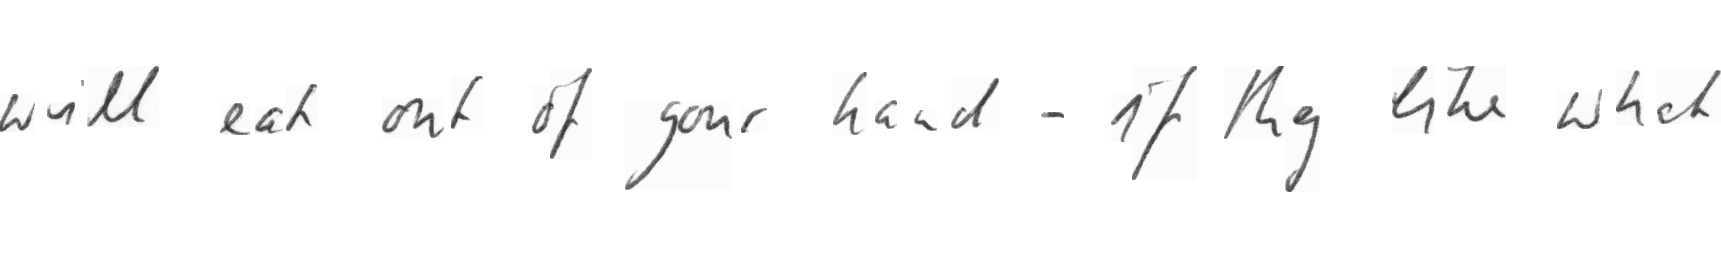 will eat out of your hand - if they like what